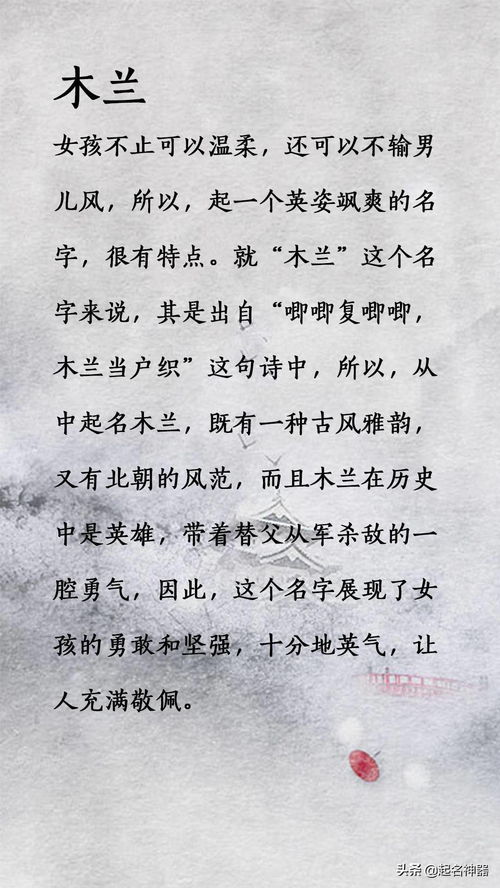 木兰
女孩不止可以温柔，还可以不输男
儿风，所以，起一个英姿飒爽的名
字，很有特点。就“木兰”这个名
字来说，其是出自“唧唧复唧唧，
木兰当户织”这句诗中，所以，从
中起名木兰，既有一种古风雅韵，
又有北朝的风范，而且木兰在历史
中是英雄，带着替父从军杀敌的一
腔勇气，因此，这个名字展现了女
孩的勇敢和坚强，十分地英气，让
人充满敬佩。
头条 @起名神器